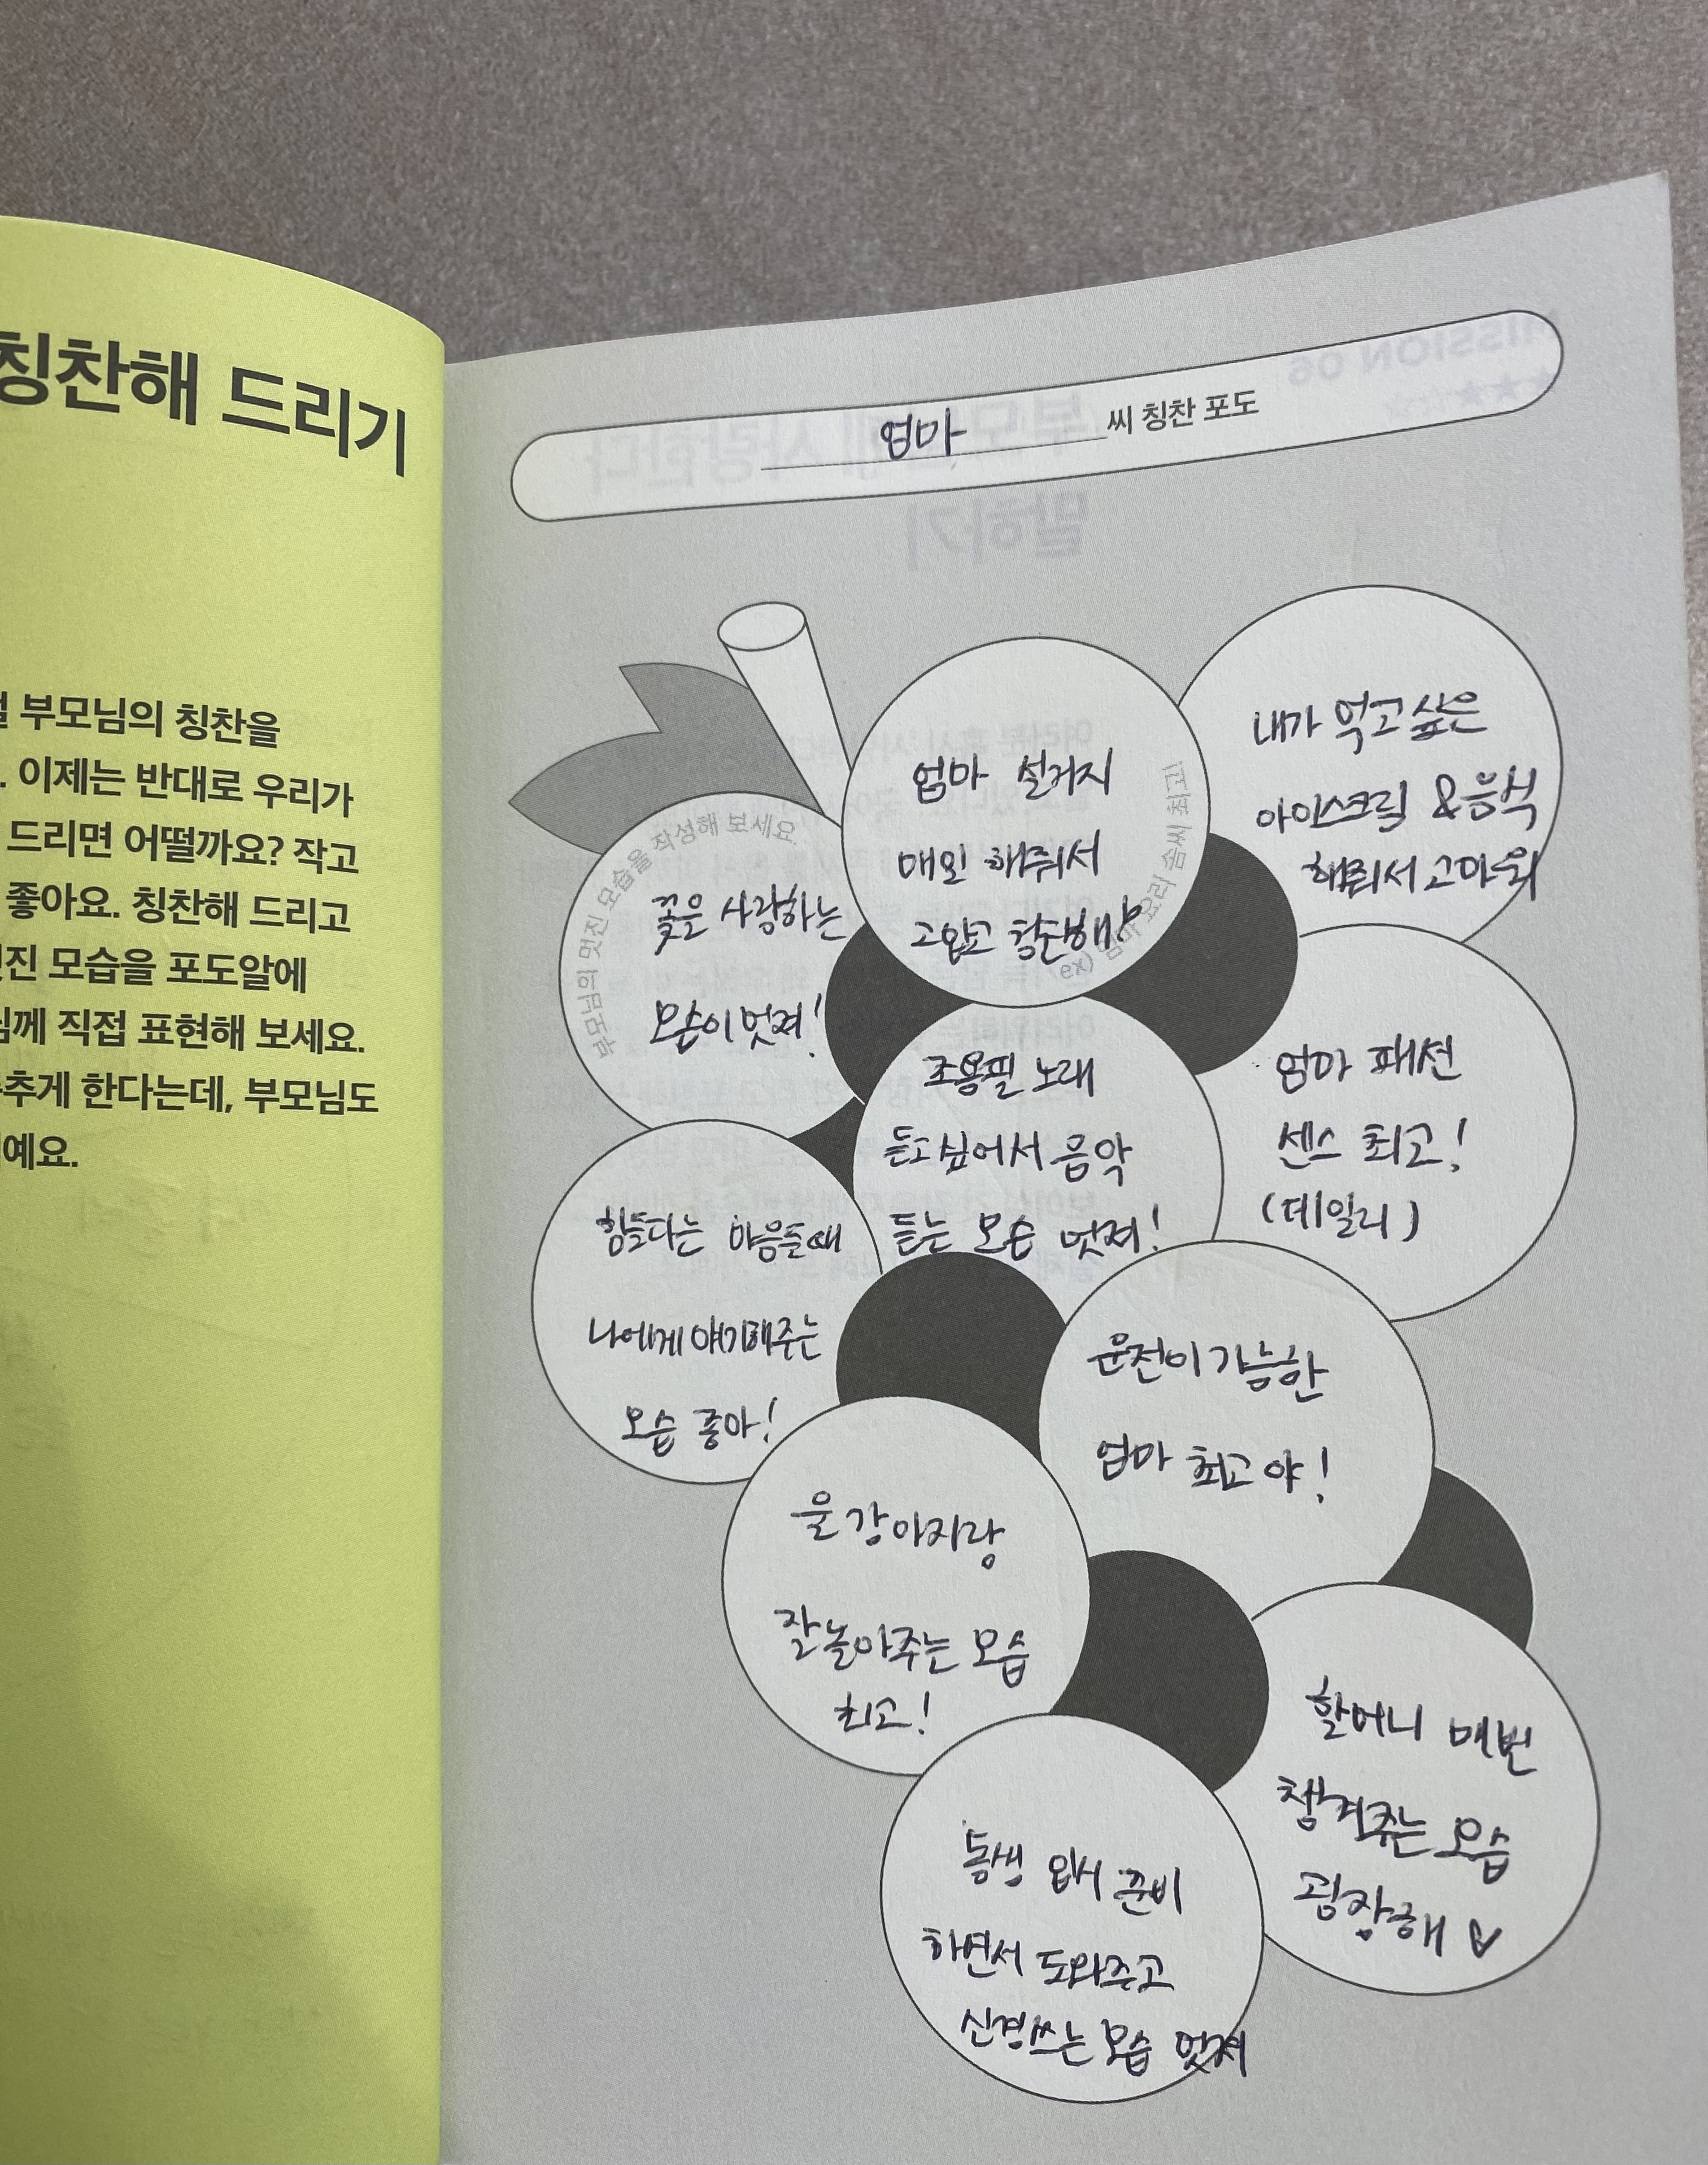 칭찬해 드리기
부모님의 칭찬을
. 이제는 반대로 우리가
드리면 어떨까요? 작고
좋아요. 칭찬해 드리고
진 모습을 포도알에
께 직접 표현해 보세요.
추게 한다는데, 부모님도
예요.
엄마 씨 칭찬 포도
부모님의 멋진 모습을 작성해 보세요.
꽃을 사랑하는
모습이 멋져!
ex) 엄마 요리 솜씨 최고!
엄마 설거지
매일 해줘서
고맙고 칭찬해
내가 먹고싶은
아이스크림 & 음식
해줘서 고마워
조용필 노래
듣고싶어서 음악
듣는 모습 멋져!
엄마 패션
센스 최고!
(데일리)
힘들다는 마음들때
나에게 얘기해주는
모습 좋아!
운전이 가능한
엄마 최고야!
울 강아지랑
잘놀아주는 모습
최고!
할머니 매번
챙겨주는 모습
굉장해
동생 입시 준비
하면서 도와주고
신경쓰는 모습 멋져